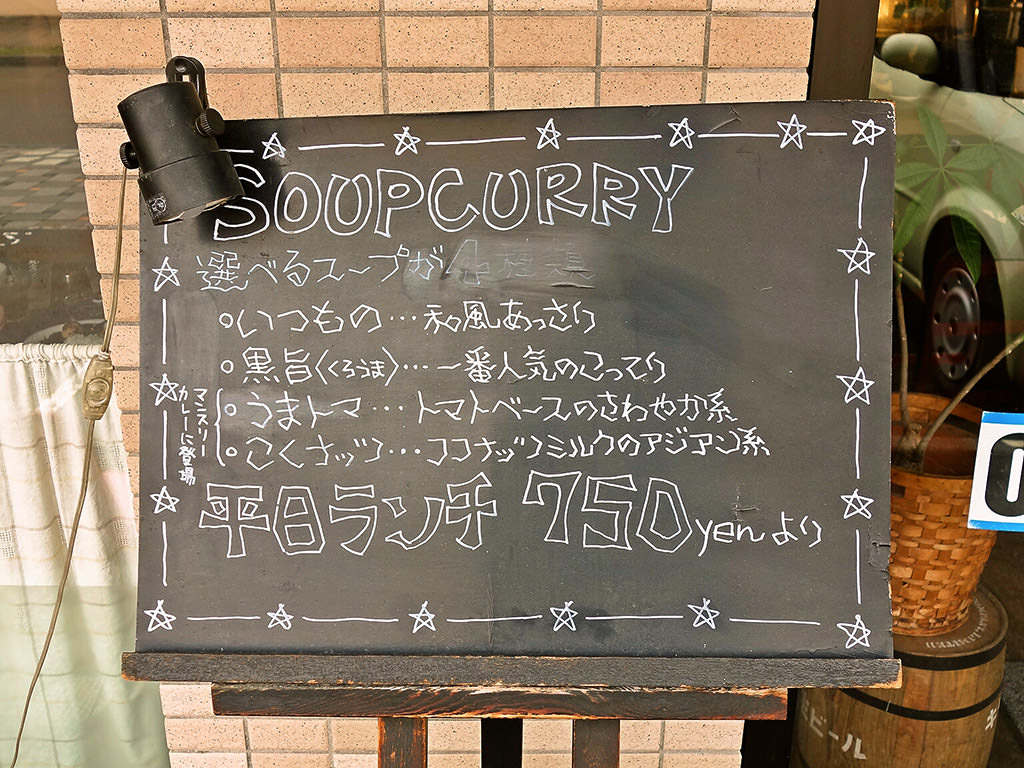 SOUPCURRY
選べるスープが4種
・いつもの…和風あっさり
・黒旨〈くろうま〉…一番人気のこってり
マンスリーカレーに登場
・うまトマ…トマトベースのさわやか系
・こくナッツ…ココナッツミルクのアジアン系
平日ランチ 750yenより
ビール